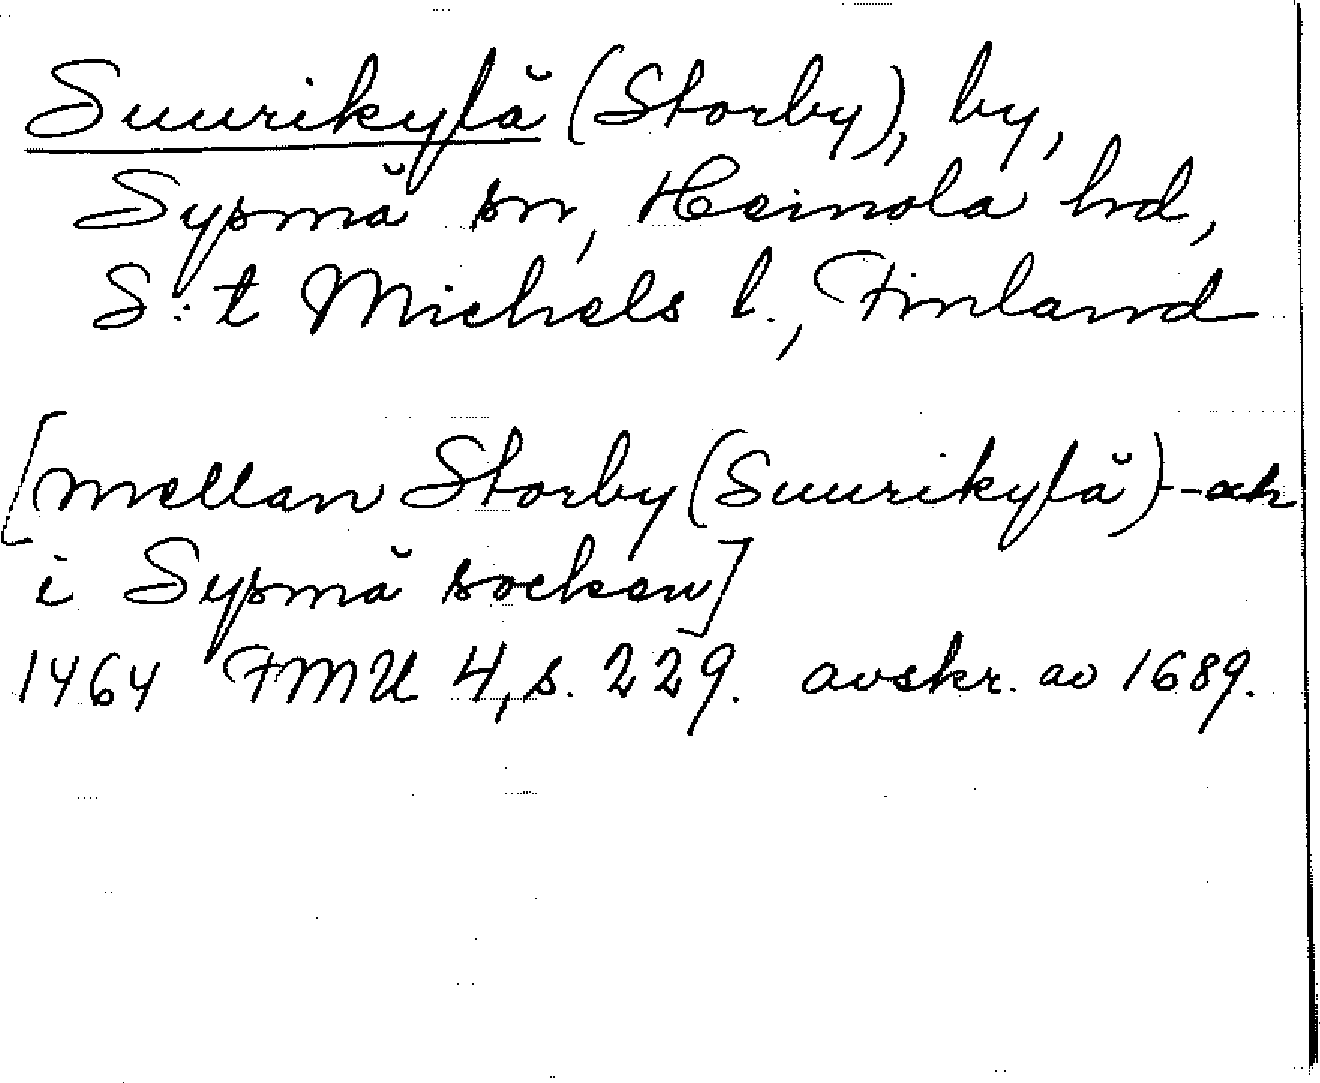 Suurikylä (Storby), by,
Sysmä sn, Heinola hd,
S:t Michels l., Finland
[mellan Storby (Suurikylä) - och
i Sysmä socken]
1464 FMU 4, s. 229. avskr. av 1689.